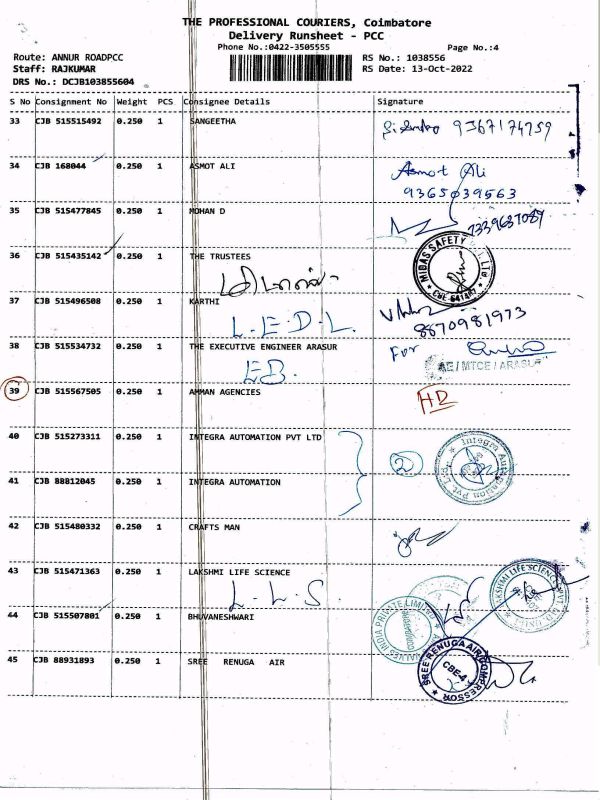 THE PROFESSIONAL COURIERS, Coimbatore
Delivery Runsheet - PCC
Phone No.:0422-3505555 Page No.:4
Route: ANNUR ROADPCC RS No.: 1038556
Staff: RAJKUMAR RS Date: 13-Oct-2022
DRS No.: DCJB103855604
S No Consignment No Weight PCS Consignee Details Signature
33 CJB 515515492 0.250 1 SANGEETHA
34 CJB 168044 0.250 1 ASMOT ALI Asmot Ali
9365039563
35 CJB 515477845 0.250 1 MOHAN D 7339637089
36 CJB 515435142 0.250 1 THE TRUSTEES MIDAS SAFETY
37 CJB 515496508 0.250 1 KARTHI
L.E.D.L. 8870981973
38 CJB 515534732 0.250 1 THE EXECUTIVE ENGINEER ARASUR For
EB. AE / MTCE / ARASUR
39 CJB 515567505 0.250 1 AMMAN AGENCIES HD
40 CJB 515273311 0.250 1 INTEGRA AUTOMATION PVT LTD
2 Integra Automation Pvt. Ltd.
41 CJB 88812045 0.250 1 INTEGRA AUTOMATION
42 CJB 515480332 0.250 1 CRAFTS MAN
43 CJB 515471363 0.250 1 LAKSHMI LIFE SCIENCE
L.L.S. LAKSHMI LIFE SCIENCE
44 CJB 515507801 0.250 1 BHUVANESHWARI
INDIA PRIVATE LIMITED
45 CJB 88931893 0.250 1 SREE RENUGA AIR
SREE RENUGA AIR COMPRESSOR
CBE-4